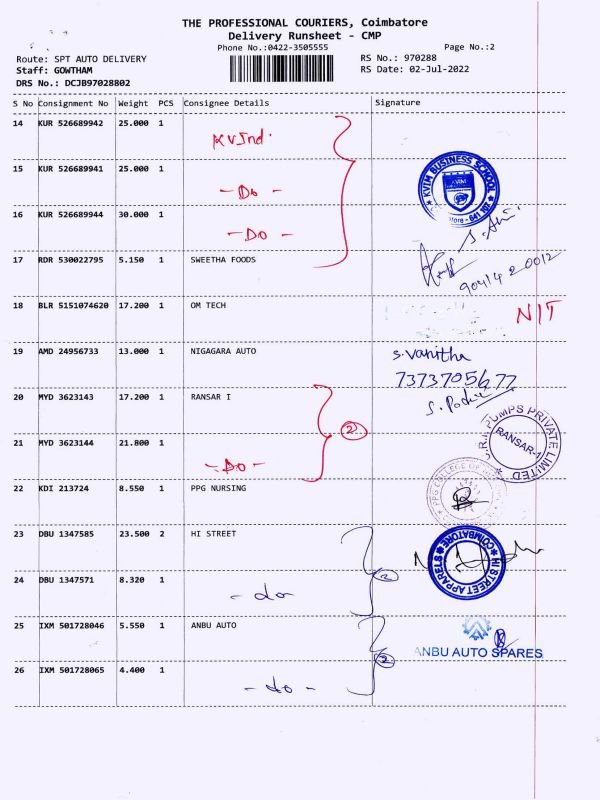 THE PROFESSIONAL COURIERS, Coimbatore
Delivery Runsheet - CMP
Phone No.:0422-3505555
Page No.:2
Route: SPT AUTO DELIVERY
RS No.: 970288
Staff: GOWTHAM
RS Date: 02-Jul-2022
DRS No.: DCJB97028802
S No Consignment No Weight PCS Consignee Details Signature
14 KUR 526689942 25.000 1
15 KUR 526689941 25.000 1
- Do -
KVIM BUSINESS SCHOOL
KVIM
16 KUR 526689944 30.000 1
- Do -
17 RDR 530022795 5.150 1 SWEETHA FOODS
90414 20012
18 BLR 5151074620 17.200 1 OM TECH
NIT
19 AMD 24956733 13.000 1 NIGAGARA AUTO
S. Vanitha
7373705677
20 MYD 3623143 17.200 1 RANSAR I
2
PUMPS PRIVATE LIMITED
RANSAR-1
21 MYD 3623144 21.800 1
- Do -
22 KDI 213724 8.550 1 PPG NURSING
PPG COLLEGE OF
23 DBU 1347585 23.500 2 HI STREET
HI STREET APPARELS
COIMBATORE
24 DBU 1347571 8.320 1
- do
2
25 IXM 501728046 5.550 1 ANBU AUTO
ANBU AUTO SPARES
26 IXM 501728065 4.400 1
- do -
2